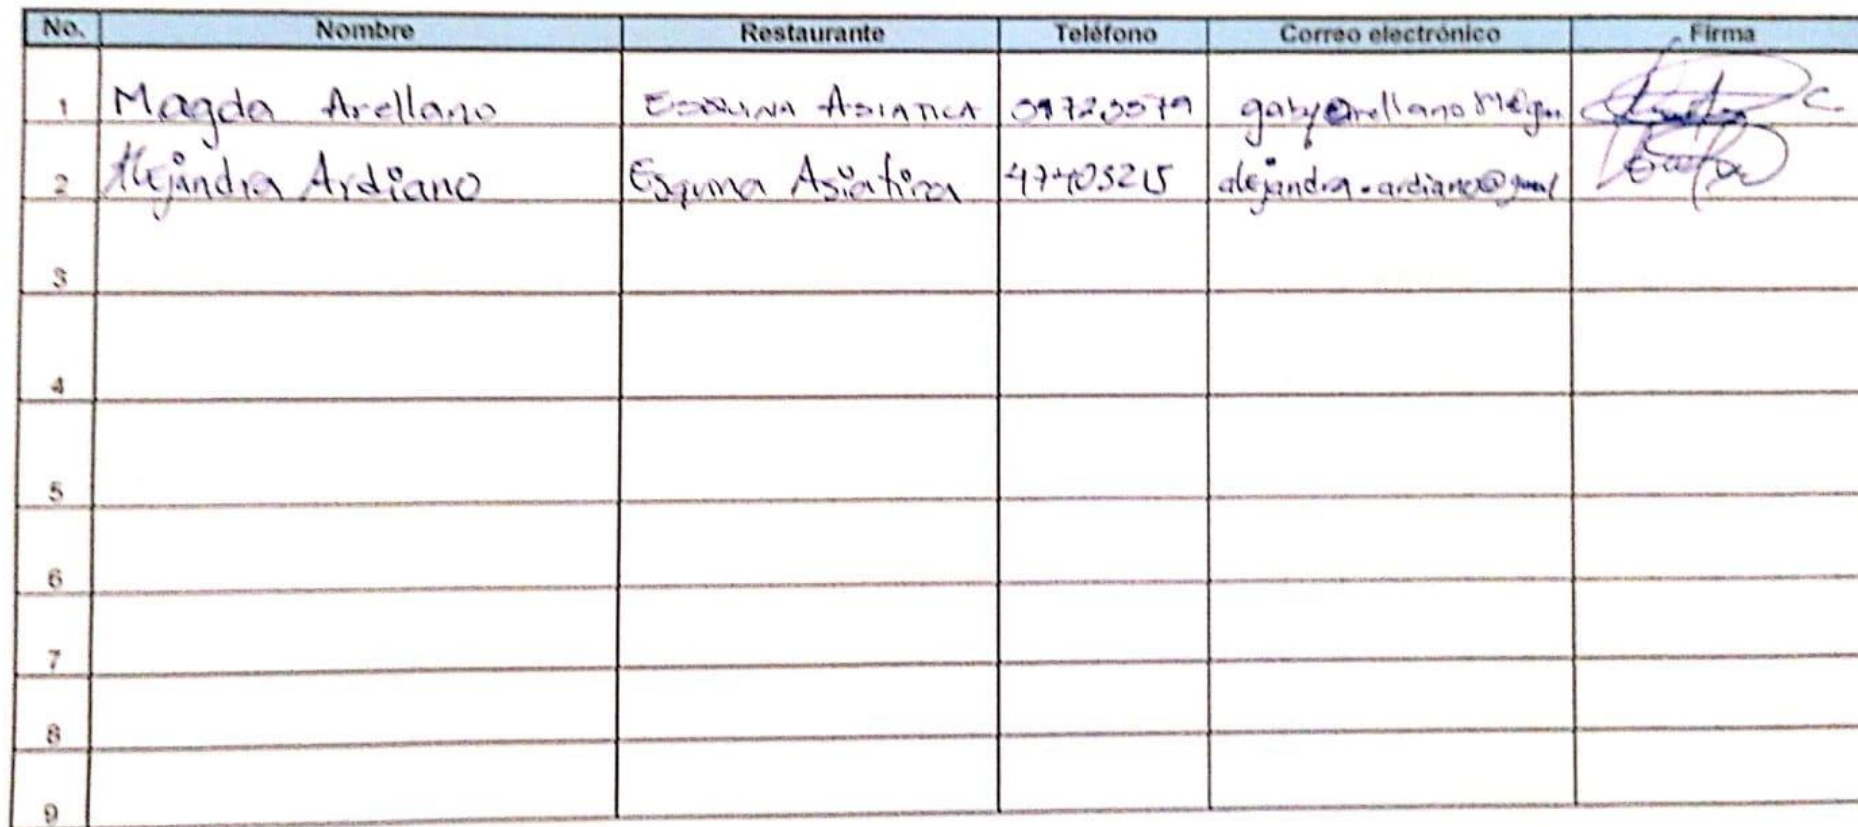 No. Nombre Restaurante Teléfono Correo electrónico Firma
1 Magda Arellano ESQUINA ASIATICA
2 Alejandra Ardiano Esquina Asiatica 47405215 alejandra.ardiano@gmail
3
4
5
6
7
8
9